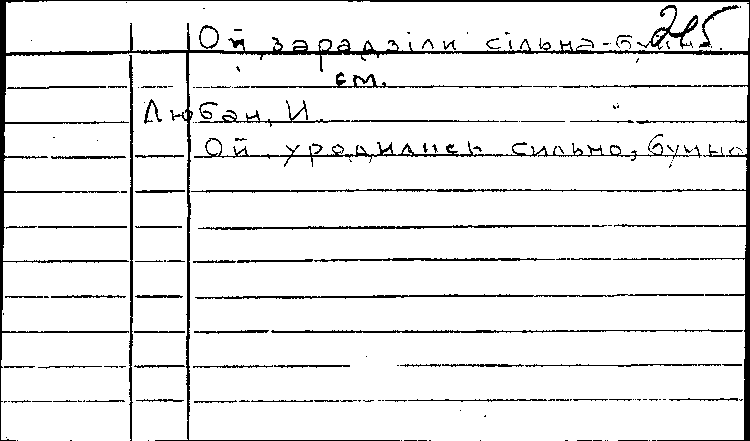 215
Ой, зарадзіли сільна-буйна.
см.
Любан, И.
Ой, уродились сильно, буйно